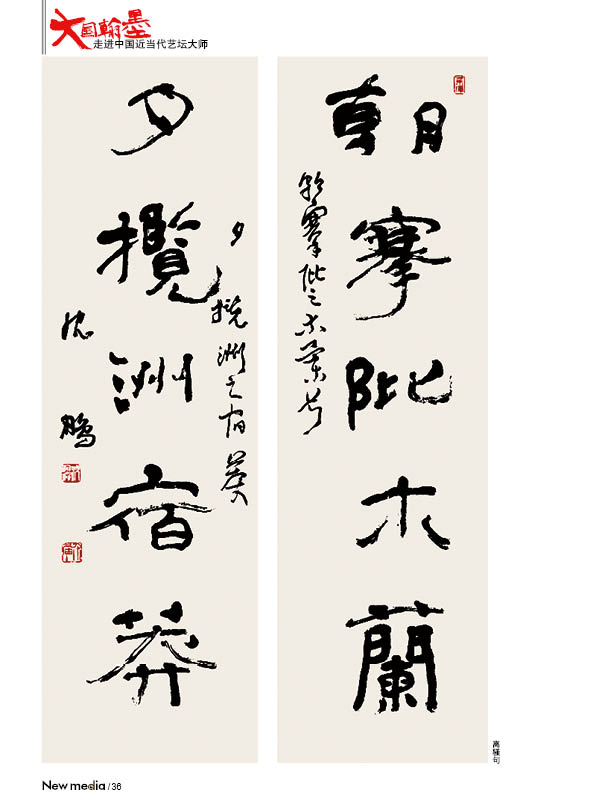 大国翰墨
走进中国近当代艺坛大师
朝搴阰木蘭
朝搴阰之木兰兮
夕攬洲宿莽
夕揽洲之宿莽
沈鹏
离骚句
New media / 36